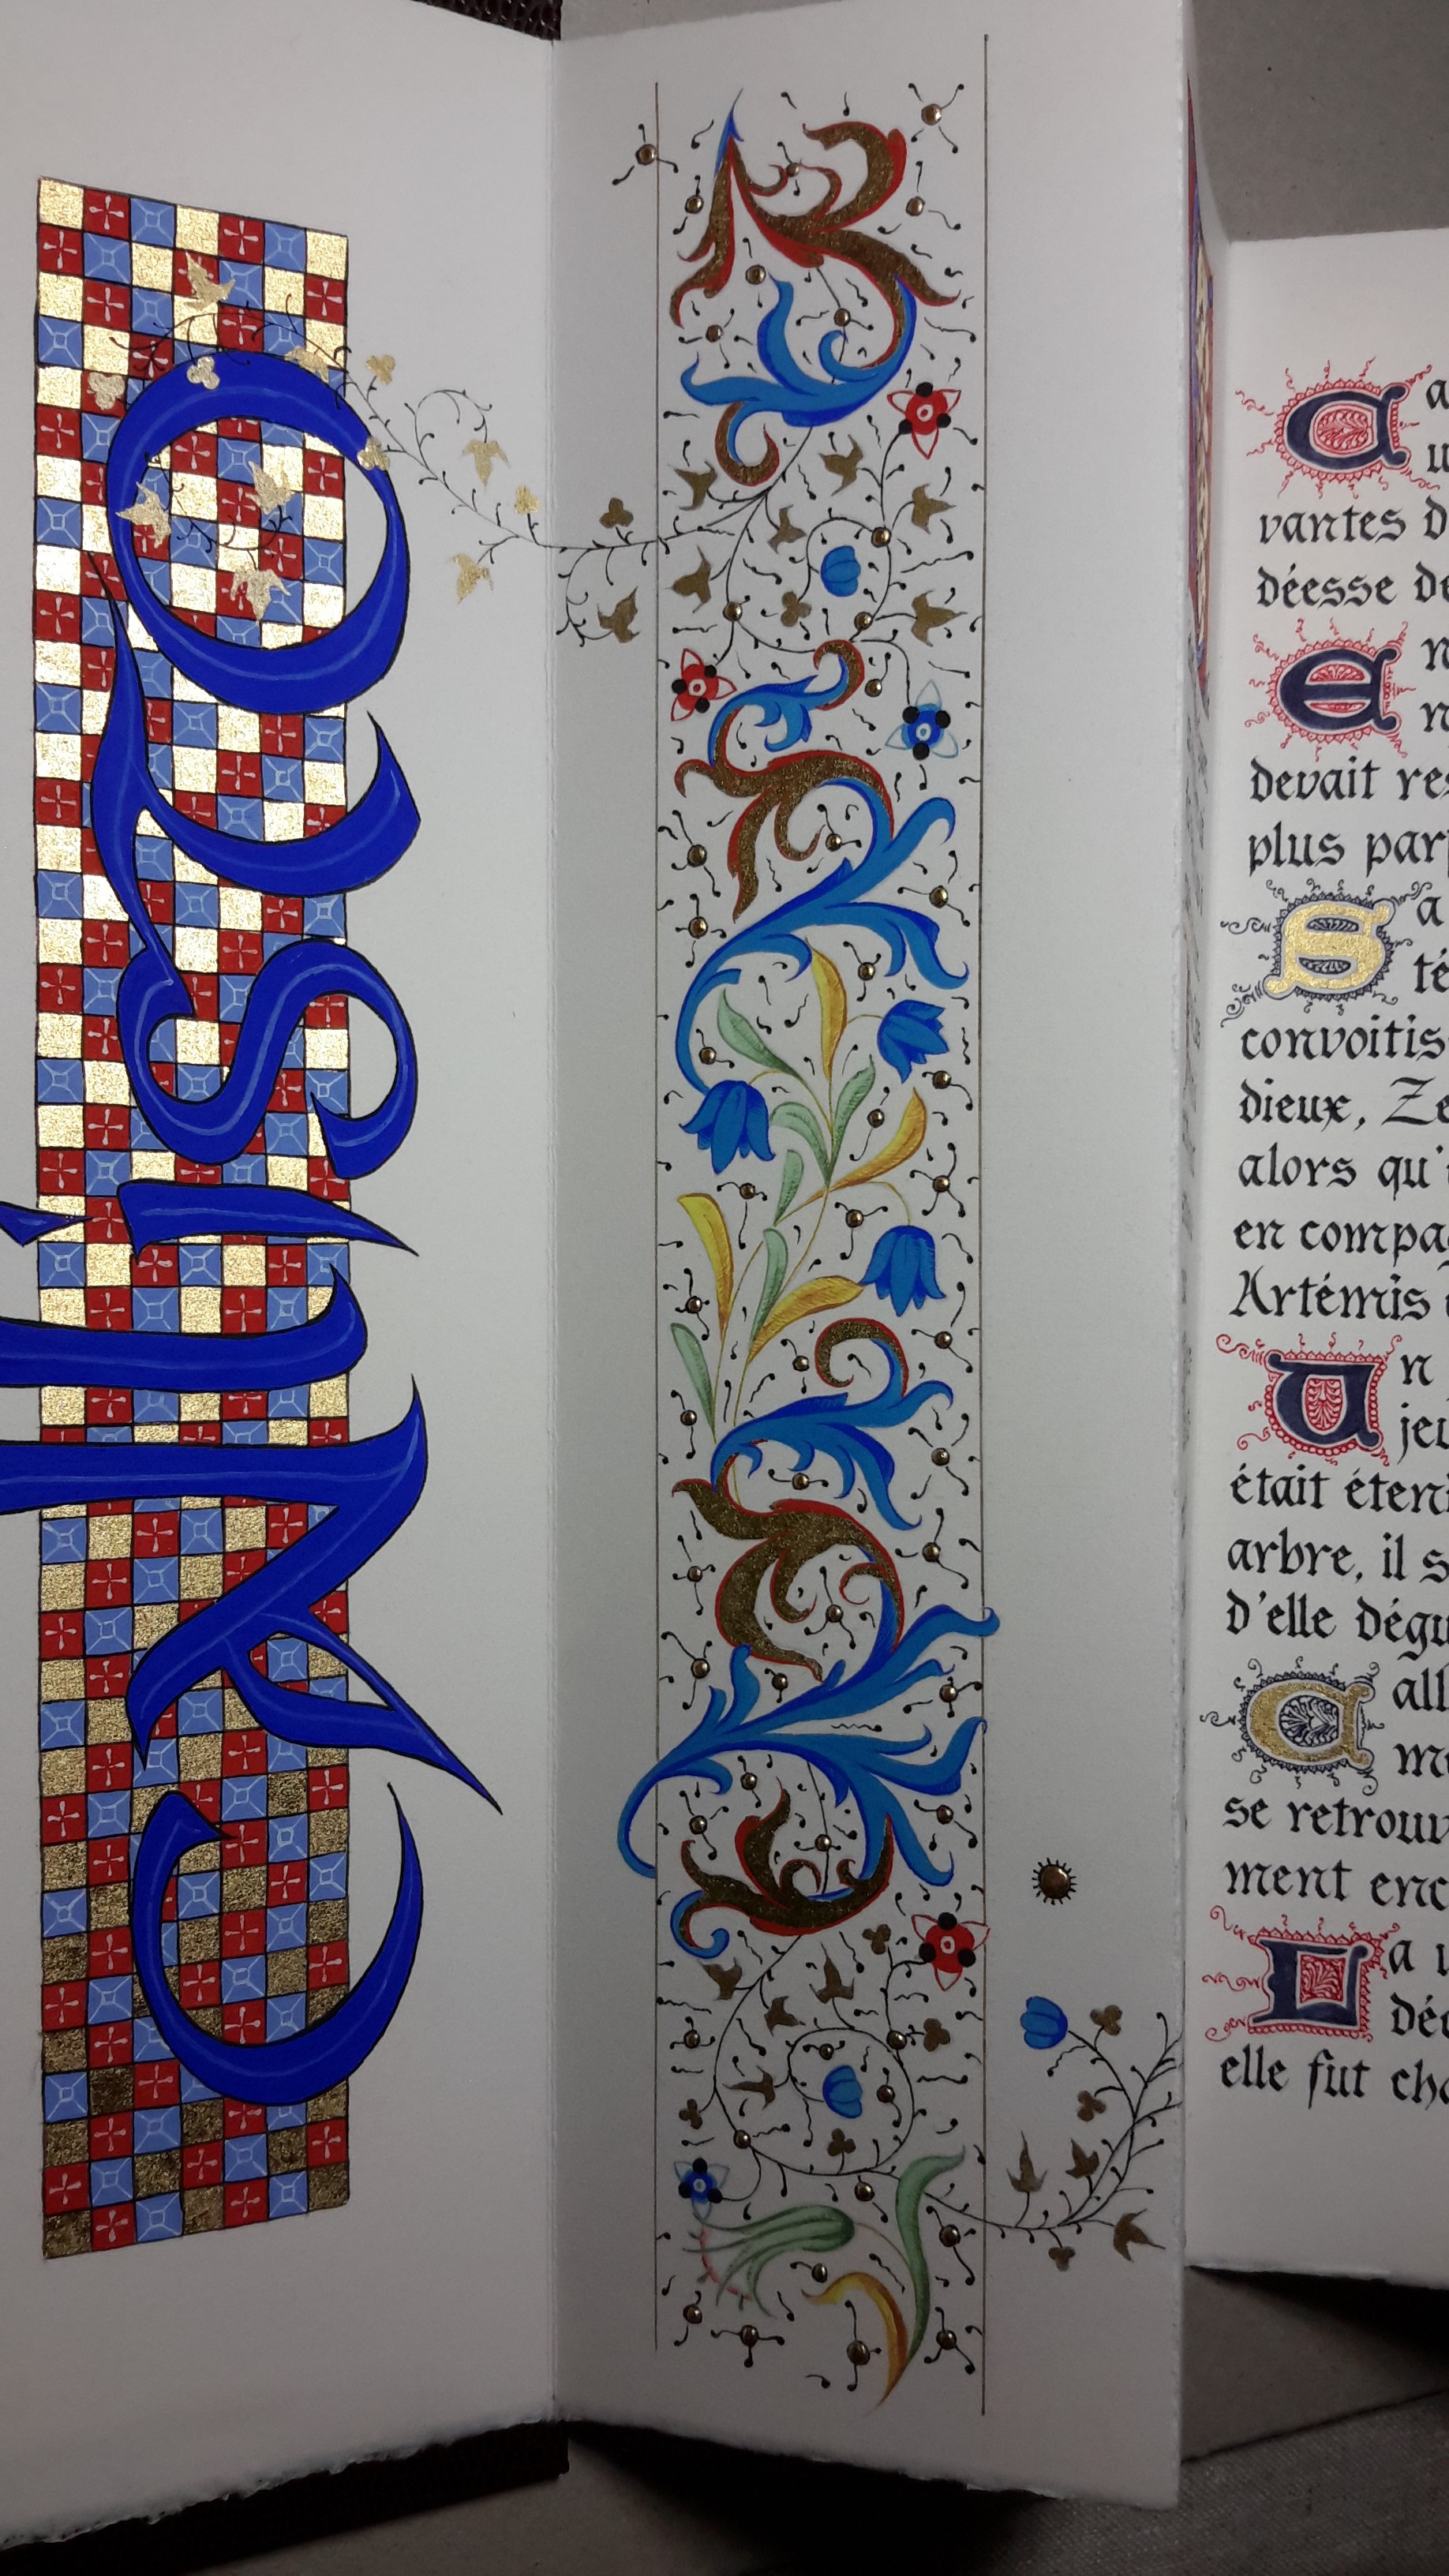 Callisto
a
u
vantes d
déesse de
En
n
devait res
plus par
Sa
té
convoitis
dieux, Ze
alors qu'
en compa
Artémis
Un
jeu
était éten
arbre, il s
d'elle dégu
Call
m
se retrouv
ment enc
La
dé
elle fut ch